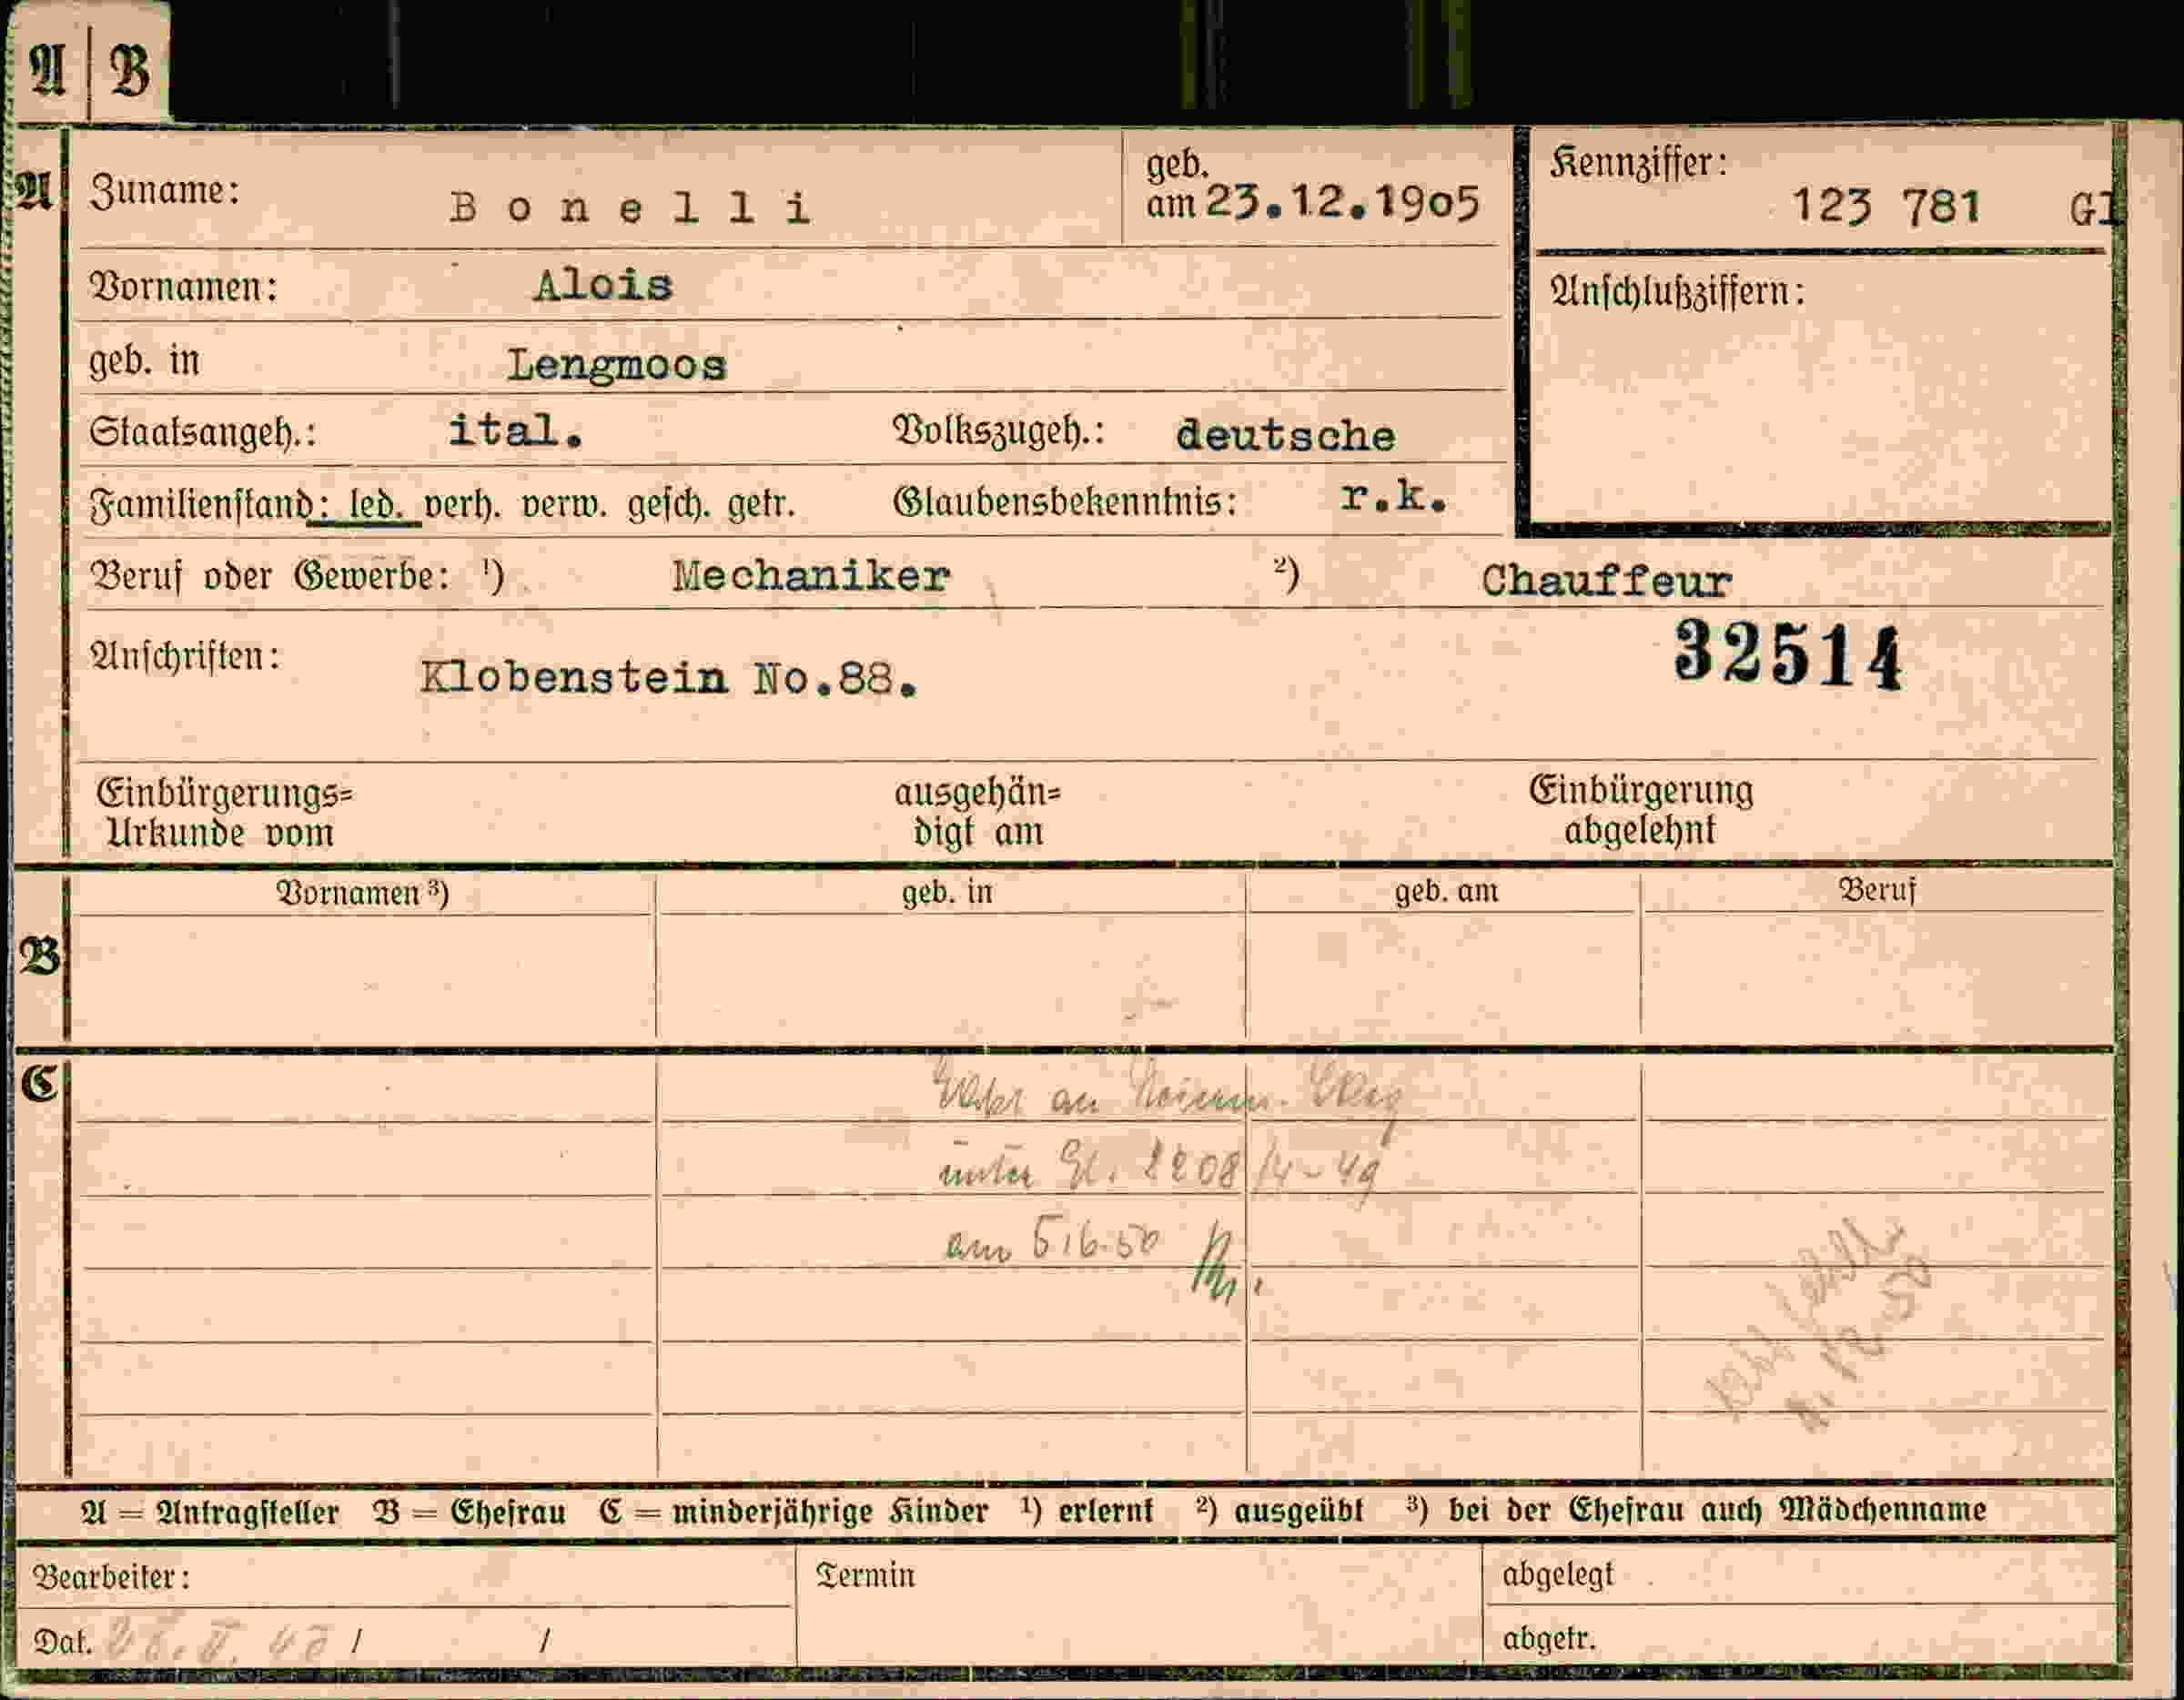 A | B
A
Zuname: Bonelli
geb. am 23.12.1905
Kennziffer: 123 781 Gl
Vornamen: Alois
Anschlußziffern:
geb. in Lengmoos
Staatsangeh.: ital. Volkszugeh.: deutsche
Familienstand: led. verh. verw. gesch. getr. Glaubensbekenntnis: r.k.
Beruf oder Gewerbe: ¹) Mechaniker ²) Chauffeur
32514
Anschriften: Klobenstein No.88.
Einbürgerungs=
Urkunde vom
ausgehän=
digt am
Einbürgerung
abgelehnt
B
Vornamen ³) geb. in geb. am Beruf
C
an
unter Gl. 2208/4-49
am 5/6.50
50
A = Antragsteller B = Ehefrau C = minderjährige Kinder ¹) erlernt ²) ausgeübt ³) bei der Ehefrau auch Mädchenname
Bearbeiter: Termin abgelegt
Dat. / / abgetr.